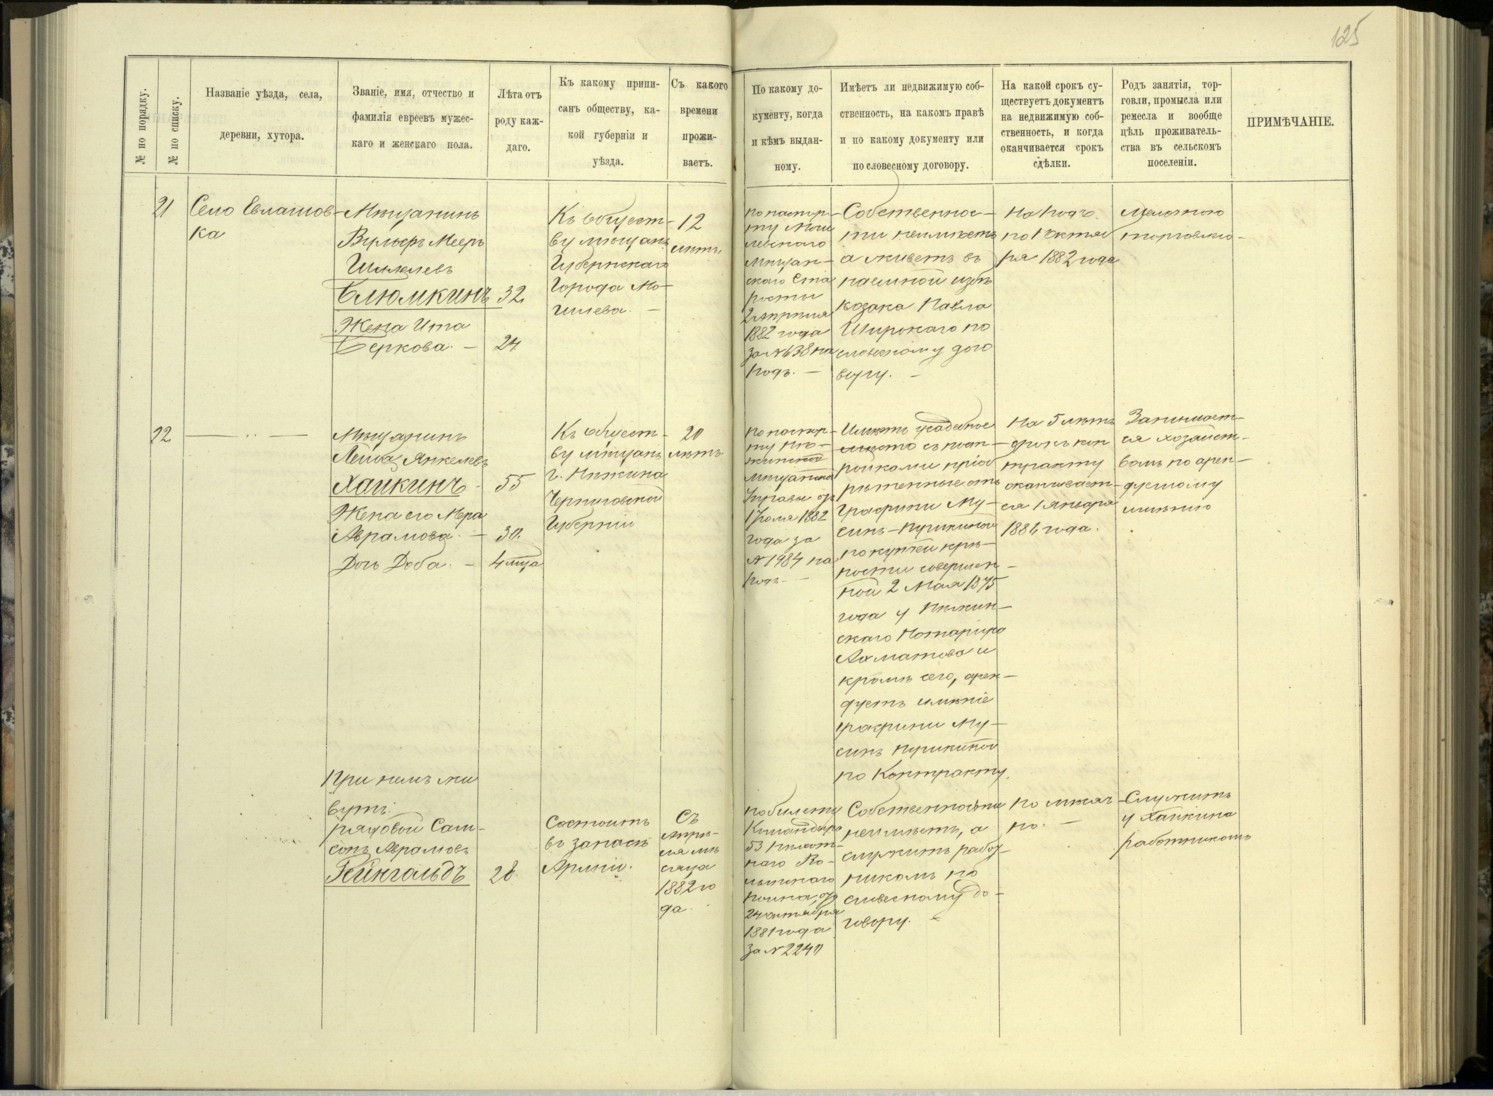 125
№ по порядку.
№ по списку.
Названіе уѣзда, села,
деревни, хутора.
Званіе, имя, отчество и
фамилія евреевъ мужес-
каго и женскаго пола.
Лѣта отъ
роду каж-
даго.
Къ какому припи-
санъ обществу, ка-
кой губерніи и
уѣзда.
Съ какого
времени
прожи-
ваетъ.
По какому до-
кументу, когда
и кѣмъ выдан-
ному.
Имѣетъ ли недвижимую соб-
ственность, на какомъ правѣ
и по какому документу или
по словесному договору.
На какой срокъ су-
ществуетъ документъ
на недвижимую соб-
ственность, и когда
оканчивается срокъ
сдѣлки.
Родъ занятія, тор-
говли, промысла или
ремесла и вообще
цѣль проживатель-
ства въ сельскомъ
поселеніи.
ПРИМѢЧАНІЕ.
21
Село Евлашов-
ка
Мѣщанинъ
Вульфъ Мееръ
Блюмкинъ
Жена Ита
Беркова. —
32
24
Къ общест-
ву мѣщанъ
Губернскаго
Города Мо-
гилева. —
12
лѣтъ
По паспор-
ту Моги
левского
мѣщан-
скаго Ста
росты
2 Апрѣля
1882 года
за № 638 на
годъ. —
Собственнос-
ти неимѣетъ
а живетъ въ
наемной избѣ
козака Павла
Широкаго по
словесному дого
вору. —
На годъ.
по 1 Октяб
ря 1882 года
Мелочною
торговлею —
22
— „ —
Мѣщанинъ
Лейба Янкелевъ
Хайкинъ
Жена его Мера
Абрамова. —
Дочь Доба. —
55
30.
4 мѣца
Къ общест-
ву мѣщанъ
г. Нѣжина
Черниговской
Губерніи
20
лѣтъ
По паспор-
ту Нѣ-
жинской
мѣщанской
Управы отъ
1 Іюля 1882
года за
№ 1984 на
годъ —
Имѣетъ усадебное
мѣсто съ пост-
ройками пріоб
рѣтенные отъ
Графини Му-
синъ-Пушкиной
по купчей крѣ-
пости совершен-
ной 2 Мая 1875
года у Нѣжин-
скаго Нотаріуса
Ахматова и
кромѣ сего, арен-
дуетъ имѣніе
Графини Му-
синъ Пушкиной
по Контракту.
На 5 лѣтъ
срокъ кон
тракту
оканчивает-
ся 1 Января
1886 года.
Занимает-
ся хозяйст-
вомъ по арен-
дуемому
имѣнію
При немъ жи
вутъ:
рядовой Сам-
сонъ Абрамовъ
Гейнгольдъ
28
Состоитъ
въ запасѣ
Арміи.
Съ
Апрѣ-
ля мѣ
сяца
1882 го
да.
По билету
Командира
53 пѣхот-
наго Во-
лынскаго
полка, отъ
24 октября
1881 года
за № 2240
Собственности
неимѣетъ, а
служитъ работ-
никомъ по
словесному до-
говору.
По мѣсяч-
но. —
Служитъ
у Хайкина
работникомъ